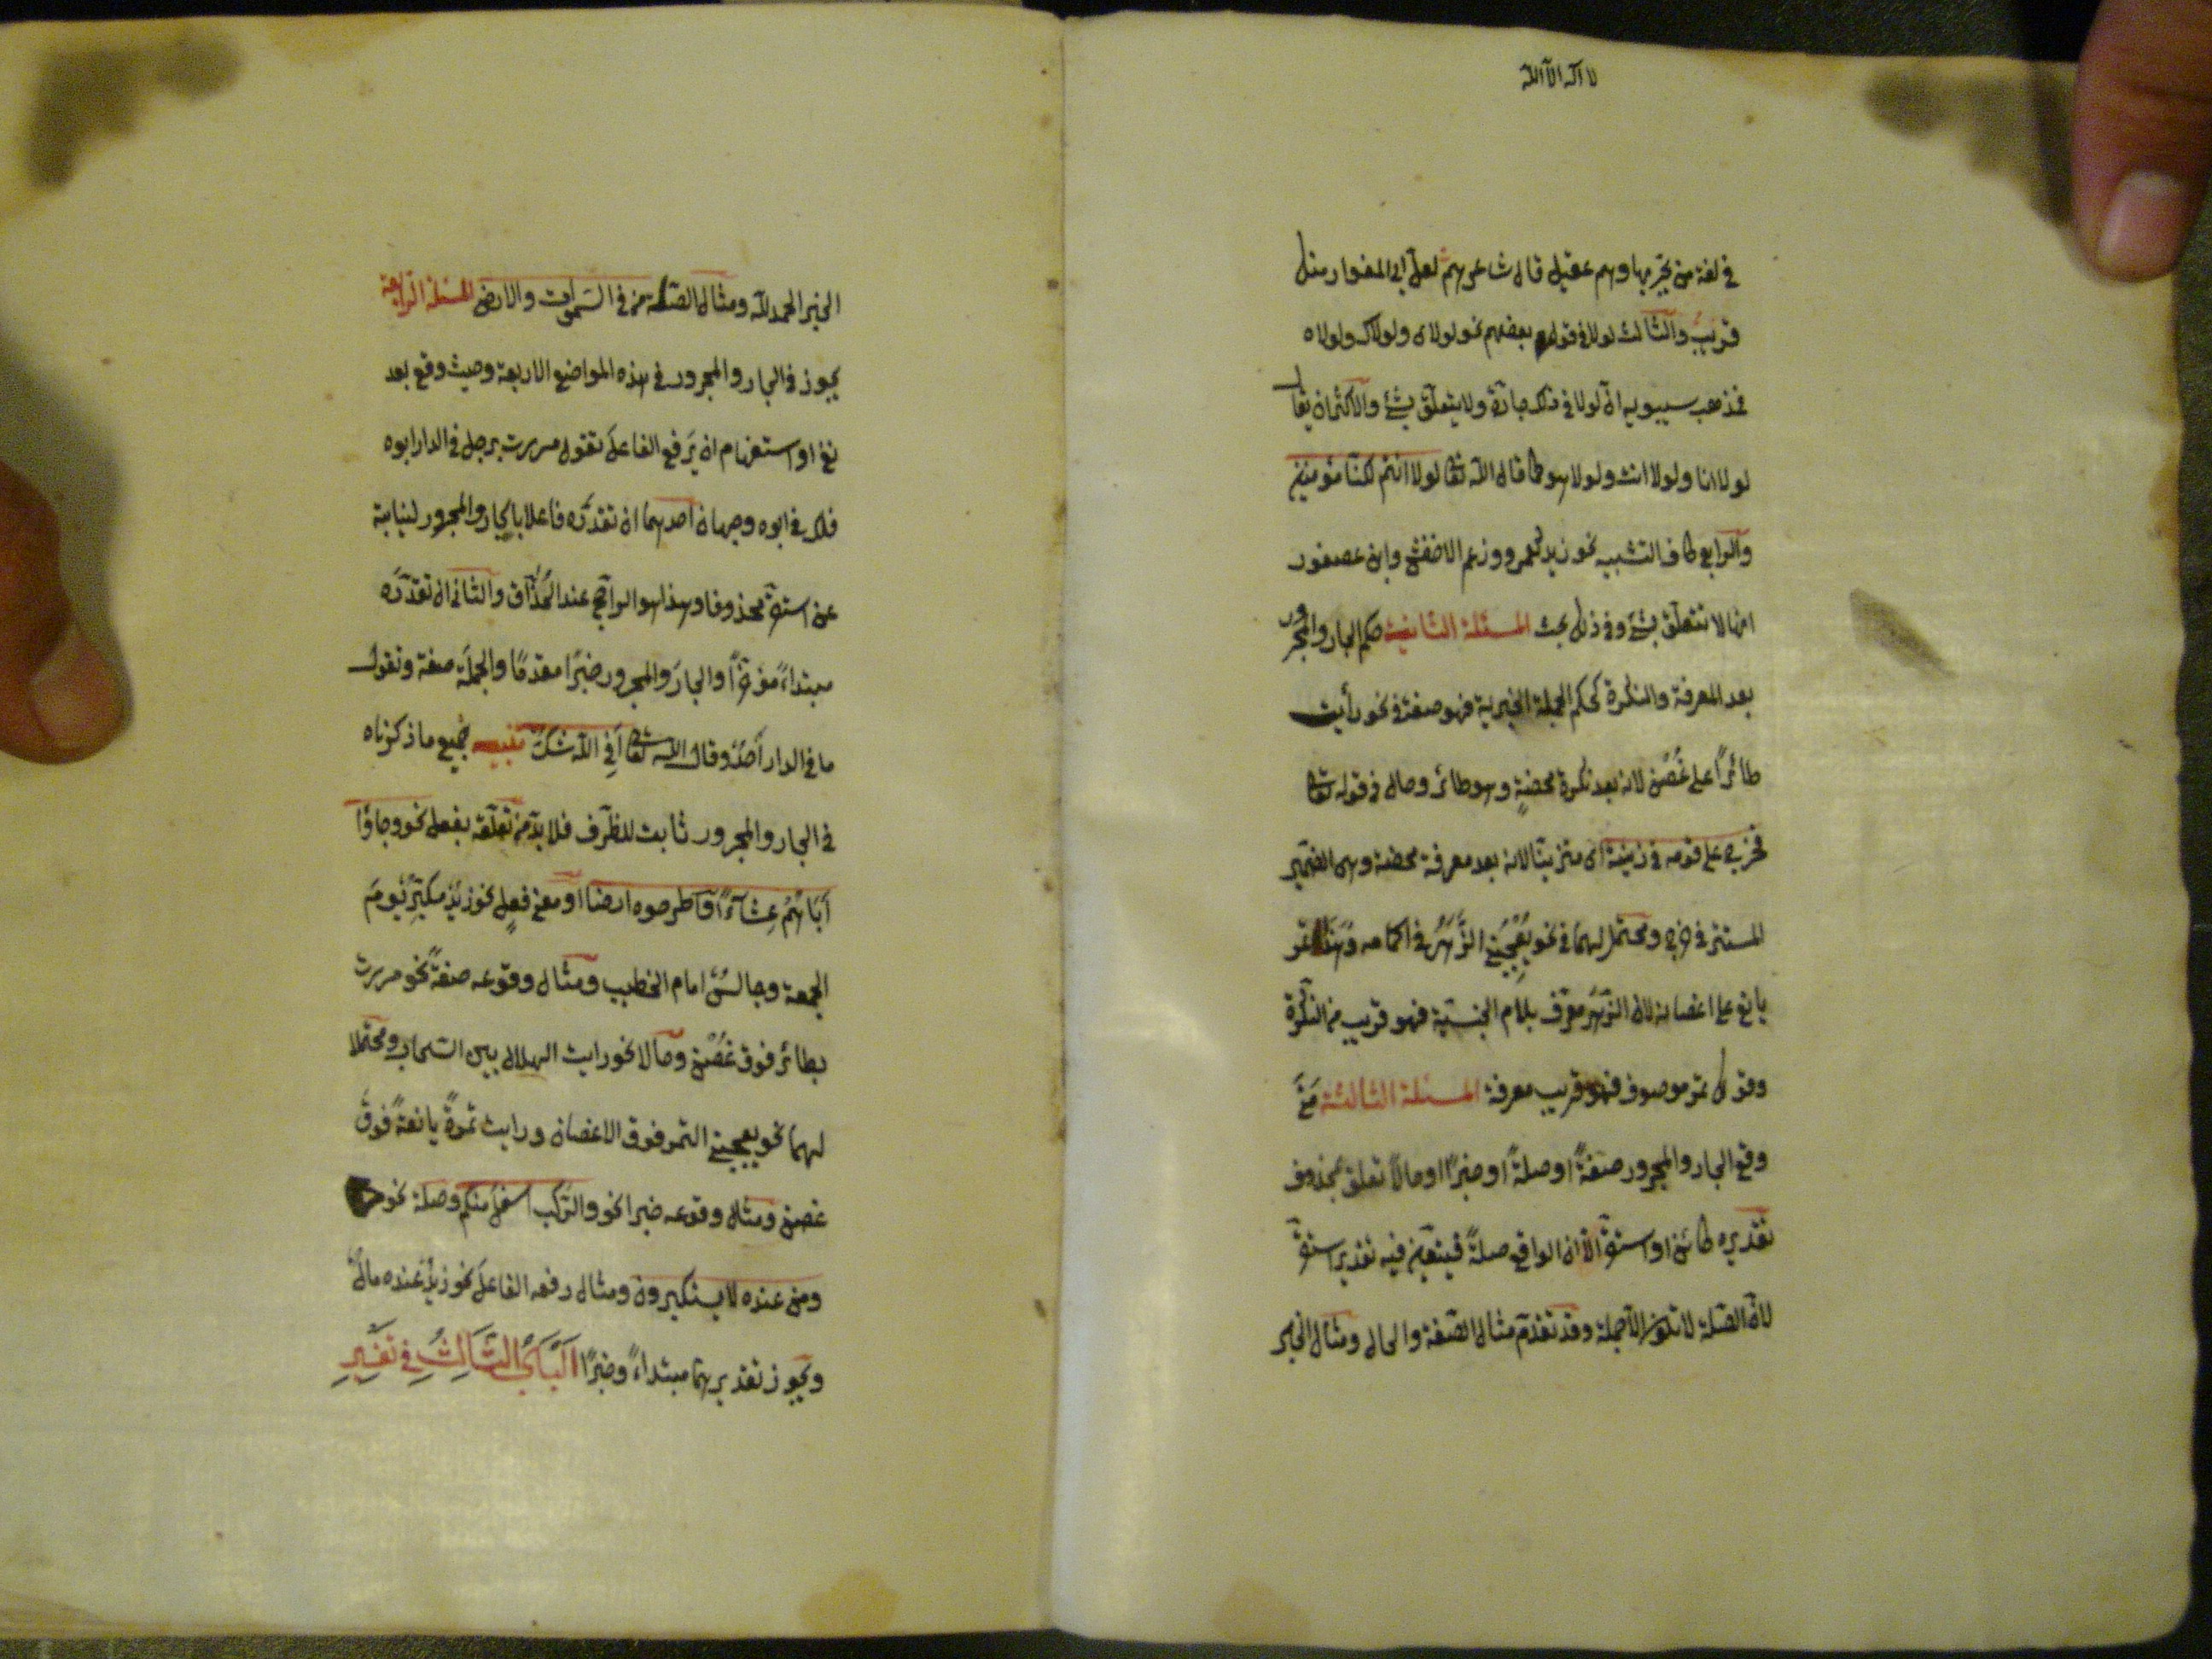 لا اله الا الله
في لغة من يجرّ بها وهم عقيل قال شاعرهم لعلّ ابي المغوار منك
قريبُ والثالث لولا في قول بعضهم نحو لولاى ولولاك ولولاه
فمذهب سيبويه انّ لولا في ذلك جارّة ولا يتعلّق بشئ والاكثر ان يقال
لولا انا ولولا انت ولولا هو كما قال الله تعا لولا انتم لكنّا مؤمنين
والرابع كاف التشبيه نحو زيد كعمرو وزعم الاخفش وابن عصفور
انها لا تتعلّق بشئ وفي ذلك بحث المسئلة الثانية حكم الجار والمجرور
بعد المعرفة والنكرة كحكم الجملة الخبرية فهو صفة في نحو رأيت
طائرًا على غُصْنٍ لانه بعد نكرة محضةٍ وهو طائر وحال في قوله تعا
فخرج على قومه في زينته اى متزينا لانه بعد معرفة محضة وهى الضمير
المستتر في خرج ومحتمل لهما في نحو يُعْجِبُنِي الزَّهَرُ في اكمامه وهَذَا ثمر
يانع على اغصانه لان الزَّهَر معرّف بلام الجنسيّة فهو قريب من النكرة
وقولك ثمر موصوف فهو قريب معرفة المسئلة الثالثة مَتَى
وقع الجار والمجرور صفةً او صلةً او خبرًا او حالًا تعلق بمحذوف
تقديره كائن او استقرّ الّا ان الواقع صلةً فيتعيّن فيه تقدير استقرّ
لانّ الصّلة لا تكون الّا جملة وقد تقدّم مثال الصّفة والحال ومثال الخبر
الخبر الحمد لله ومثال الصّلة من في السّموات والارض المسئلة الرّابعة
يجوز في الجار والمجرور في هذه المواضع الاربعة وحيث وقع بعد
نفى او استفهام ان يَرفع الفاعلَ تقول مررت برجل في الدار ابوه
فلك في ابوه وجهان احدهما ان تقدّره فاعلا بالجار والمجرور لنيابته
عن استقرّ محذوفا وهذا هو الراجح عند الحُذَّاق والثانى ان تقدّره
مبتداءً مؤخّرًا والجارَ والمجرور خبرًا مقدمًا والجملةَ صفة وتقول
ما في الدار احدٌ وقال الله تعا اَفِى الله شكٌ تنبيه جميع ما ذكرناه
في الجار والمجرور ثابت للظرف فلا بدّ من تعلّقه بفعل نحو وجاؤا
اَبَاهُمْ عِشَآءً او اطرحوه ارضا او معنى فعلٍ نحو زيدٌ مكبّرٌ يومَ
الجمعة وجالسٌ امام الخطيب ومثال وقوعه صفةً نحو مررت
بطائر فوق غُصْنٍ وحالا نحو رايت الهلال بين السّحاب ومحتملا
لهما نحو يعجبنى الثمر فوق الاغصان ورايت ثمرةً يانعةً فوقَ
غصن ومثال وقوعه خبرا نحو والرّكب اسفل منكم وصلة نحو
ومن عنده لا يستكبرون ومثال رفعه الفاعلَ نحو زيدٌ عنده مالٌ
ويجوز تقديرهما مبتداءً وخبرًا اَلْبَابُ الثَّالِثُ فِى تَفْسِيرِ